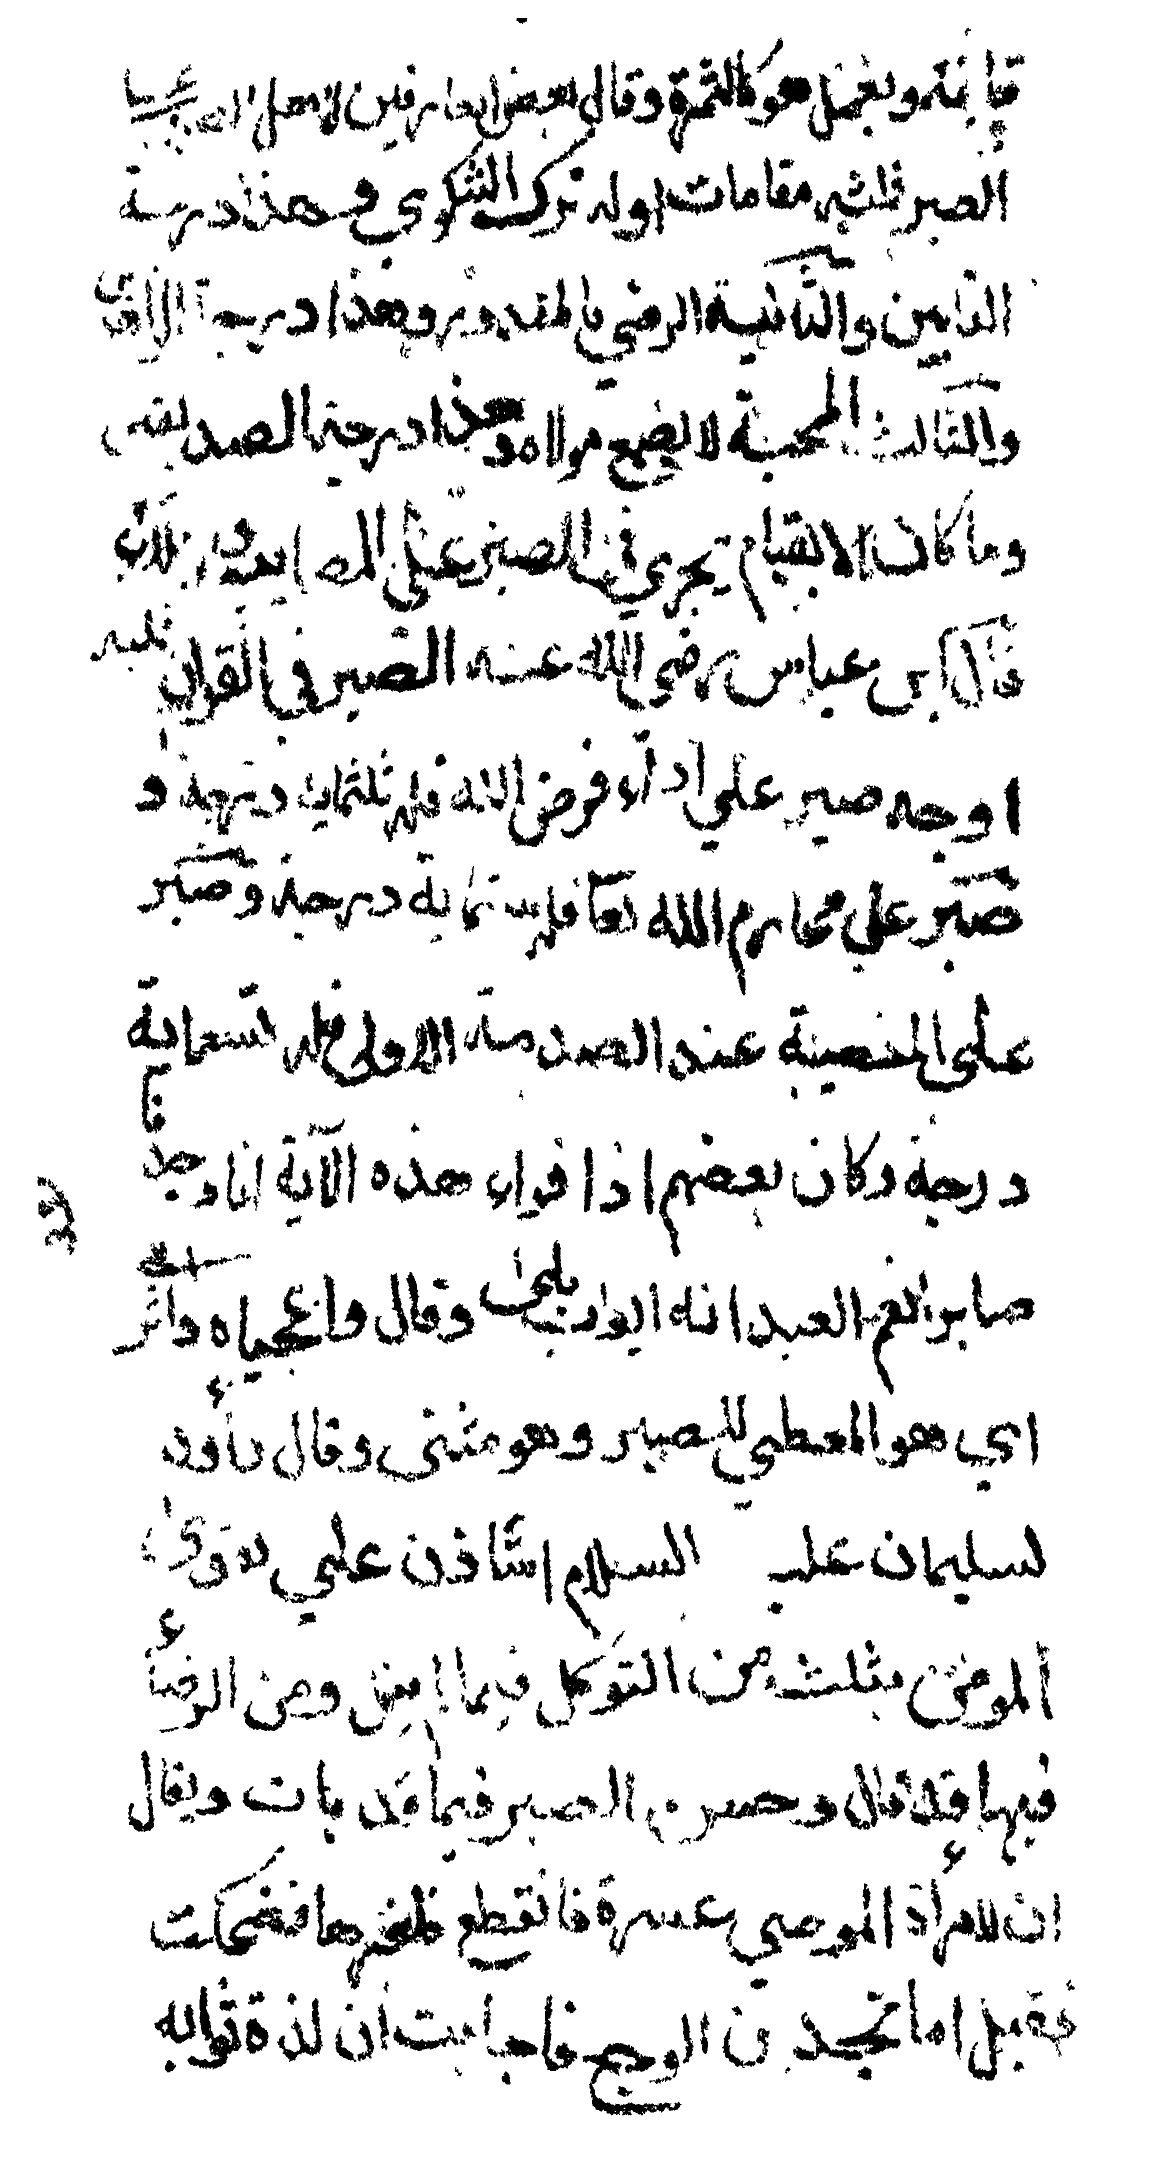 قائمه وبعمل هو كالثمرة وقال بعض العارفين لاهل
الصبر ثلثه مقامات اوله ترك الشكوي وهذا درجة
التايبين والثانية الرضي بالمقدور وهذا درجة
والثالث المحبة لا يضيع مولاه وهذا درجة الصديقين
وما كان الانقسام يجري في الصبر علي المصايب والبلايا
قال ابن عباس رضي الله عنه الصبر في القران ثلثه
اوجه صبر علي اداء فرض الله فله ثلثماية درجة و
صبر علي محارم الله تعا فله ستماية درجة وصبر
علي المصيبة عند الصدمة الاولي فله تسعماية
درجة وكان بعضهم اذا قراء هذه الآية انا وجدنا
صابرا نعم العبد انه اواب بكي وقال واعجباه
اي هو المعطي للصبر وهو مثني وقال داود
لسليمان عليه السلام استاذن علي تقوي
المومن بثلث من التوكل فيما لم ينل ومن الرضاء
فيها قد نال وحسن الصبر فيما قد فات ويقال
ان لامراة الموصي عسرة فانقطع ظفرها فضحكت
فقيل اما تجدين الوجع فاجابت ان لذة ثوابه